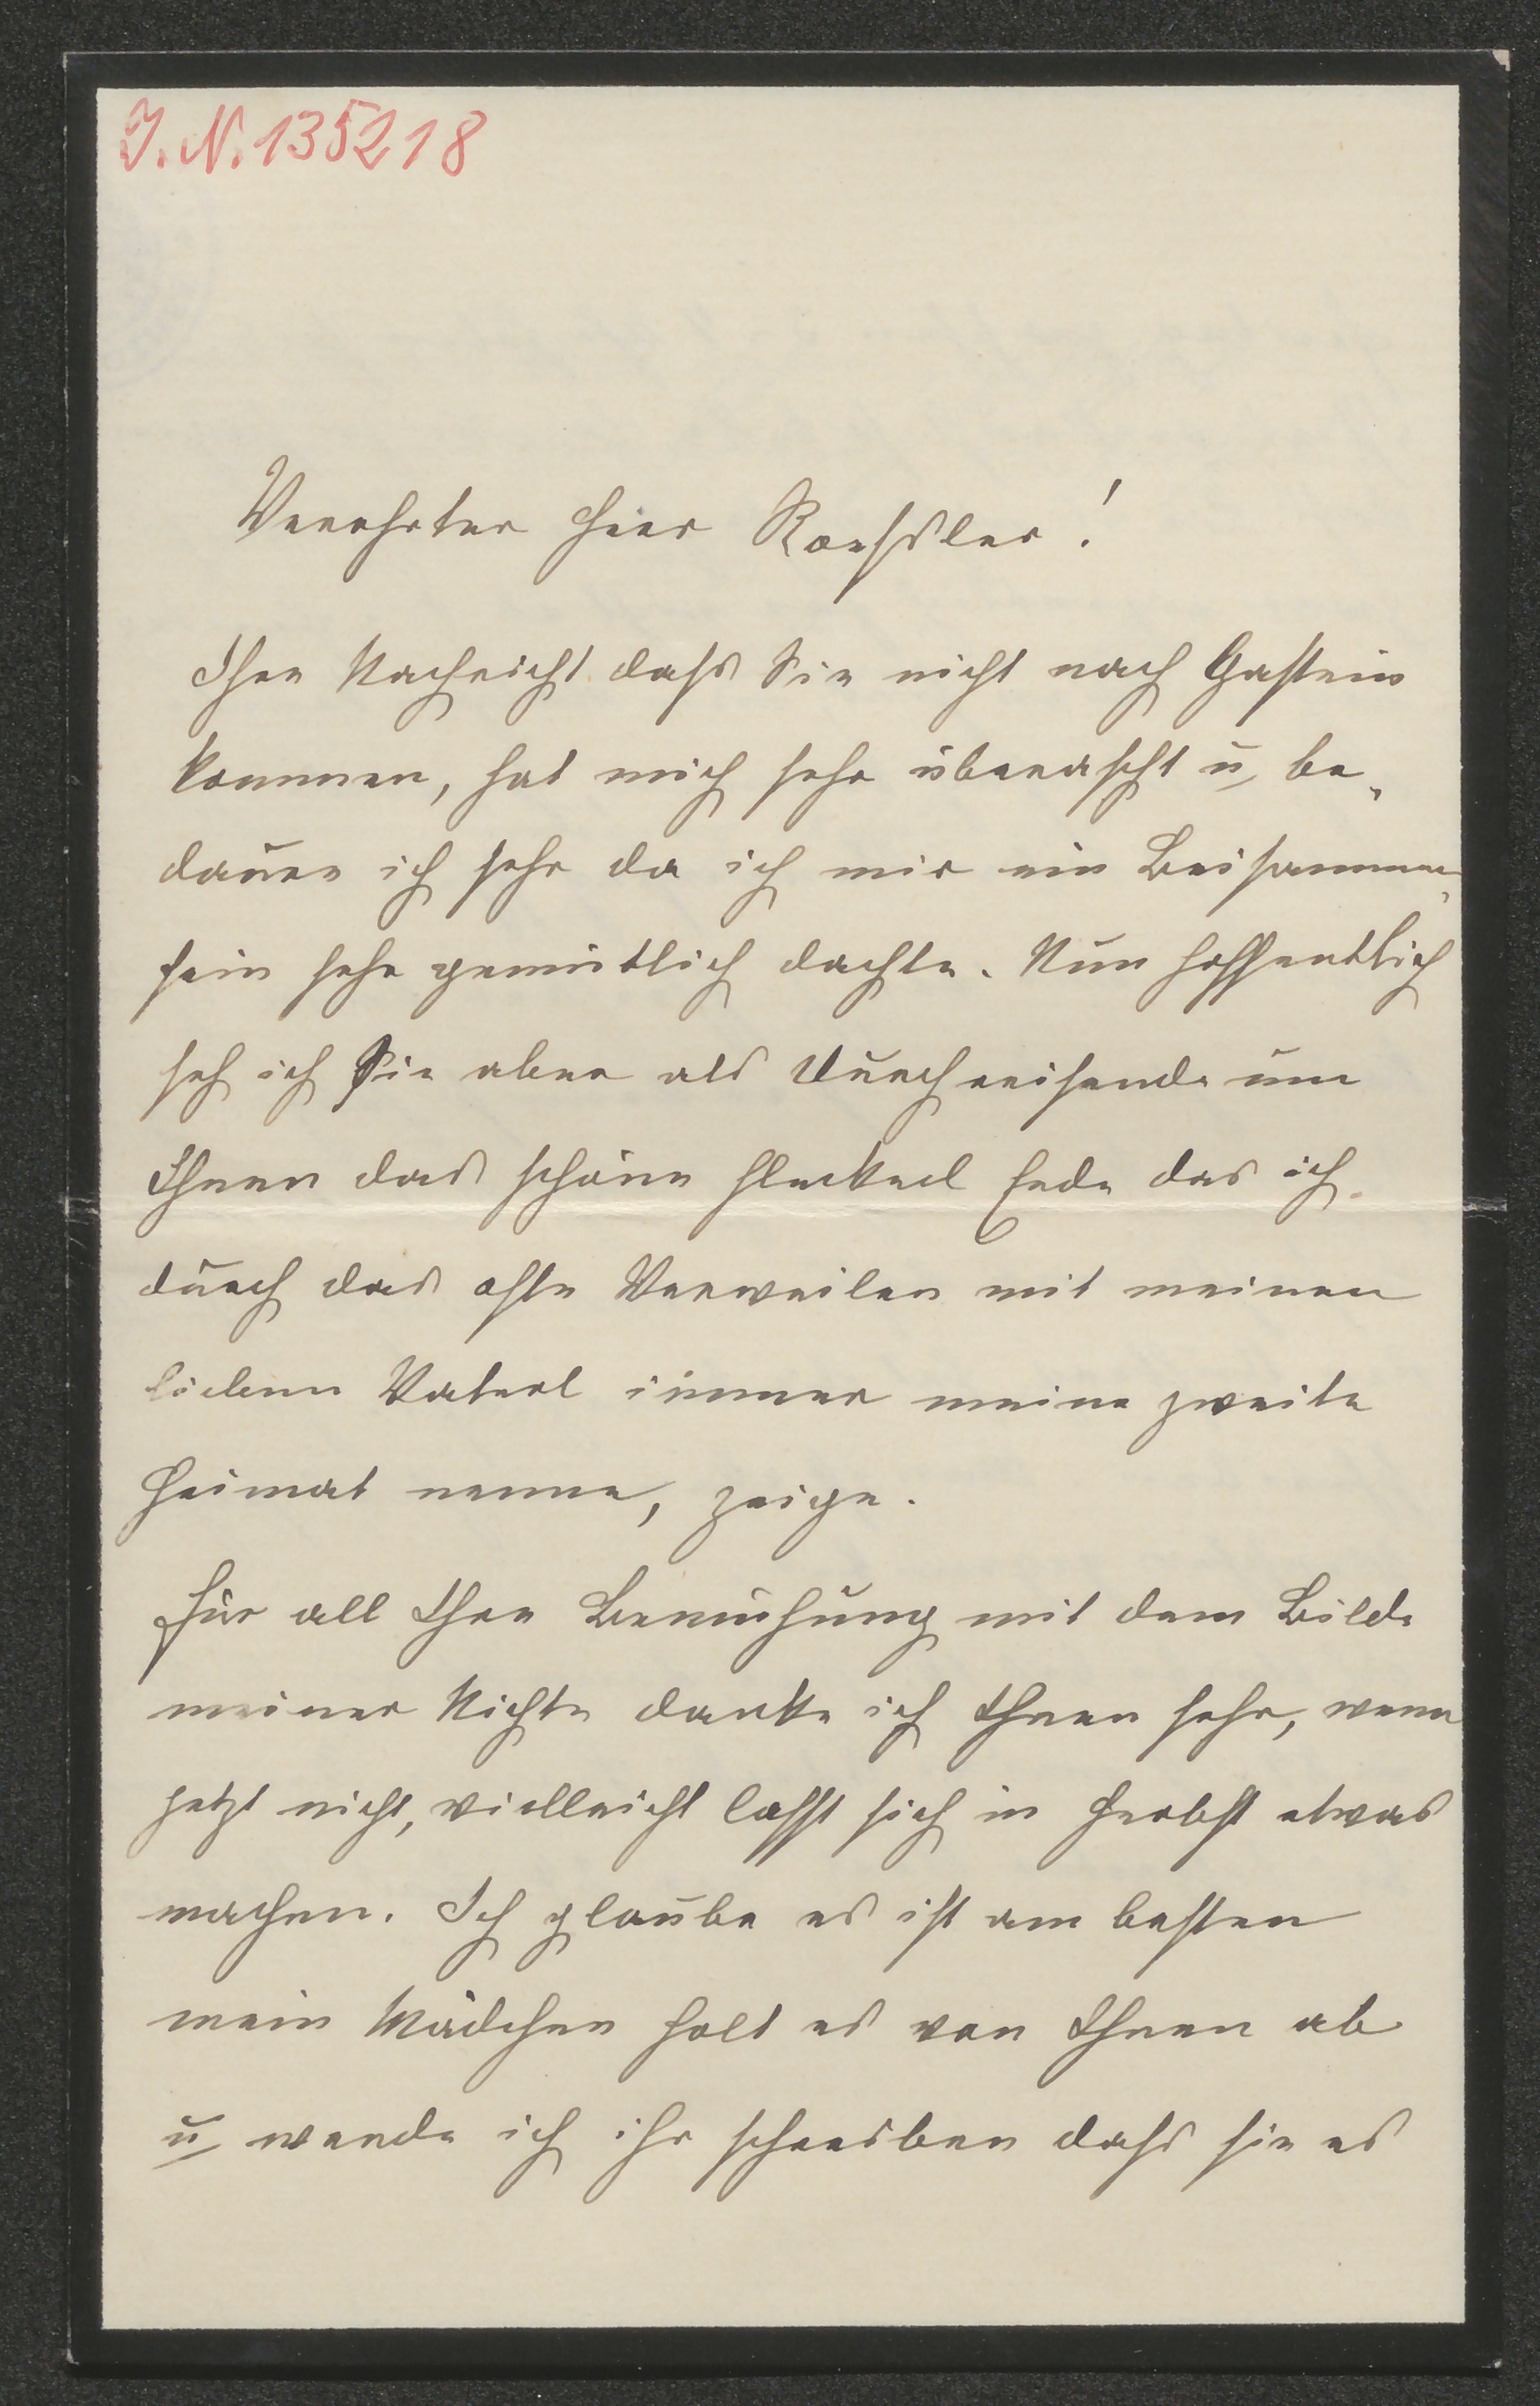 J. N. 135218
Verehrter Herr Roessler!
Ihre Nachricht dass Sie nicht nach Gastein
kommen, hat mich sehr überascht u be„
dauere ich sehr da ich mir ein Beisammen„
sein sehr gemütlich dachte. Nun hoffentlich
seh ich Sie aber als Durchreisende um
Ihnen das schöne Fleckerl Erde das ich
durch das ofte Verweilen mit meinen
lieben Vaterl immer meine zweite
Heimat nenne, zeige.
Für all Ihre Bemühung mit dem Bilde
meiner Nichte danke ich Ihnen sehr, wenn
jetzt nicht, vielleicht lässt sich in Herbst etwas
machen. Ich glaube es ist am besten
mein Mädchen holt es von Ihnen ab
u werde ich ihr schreiben dass sie es